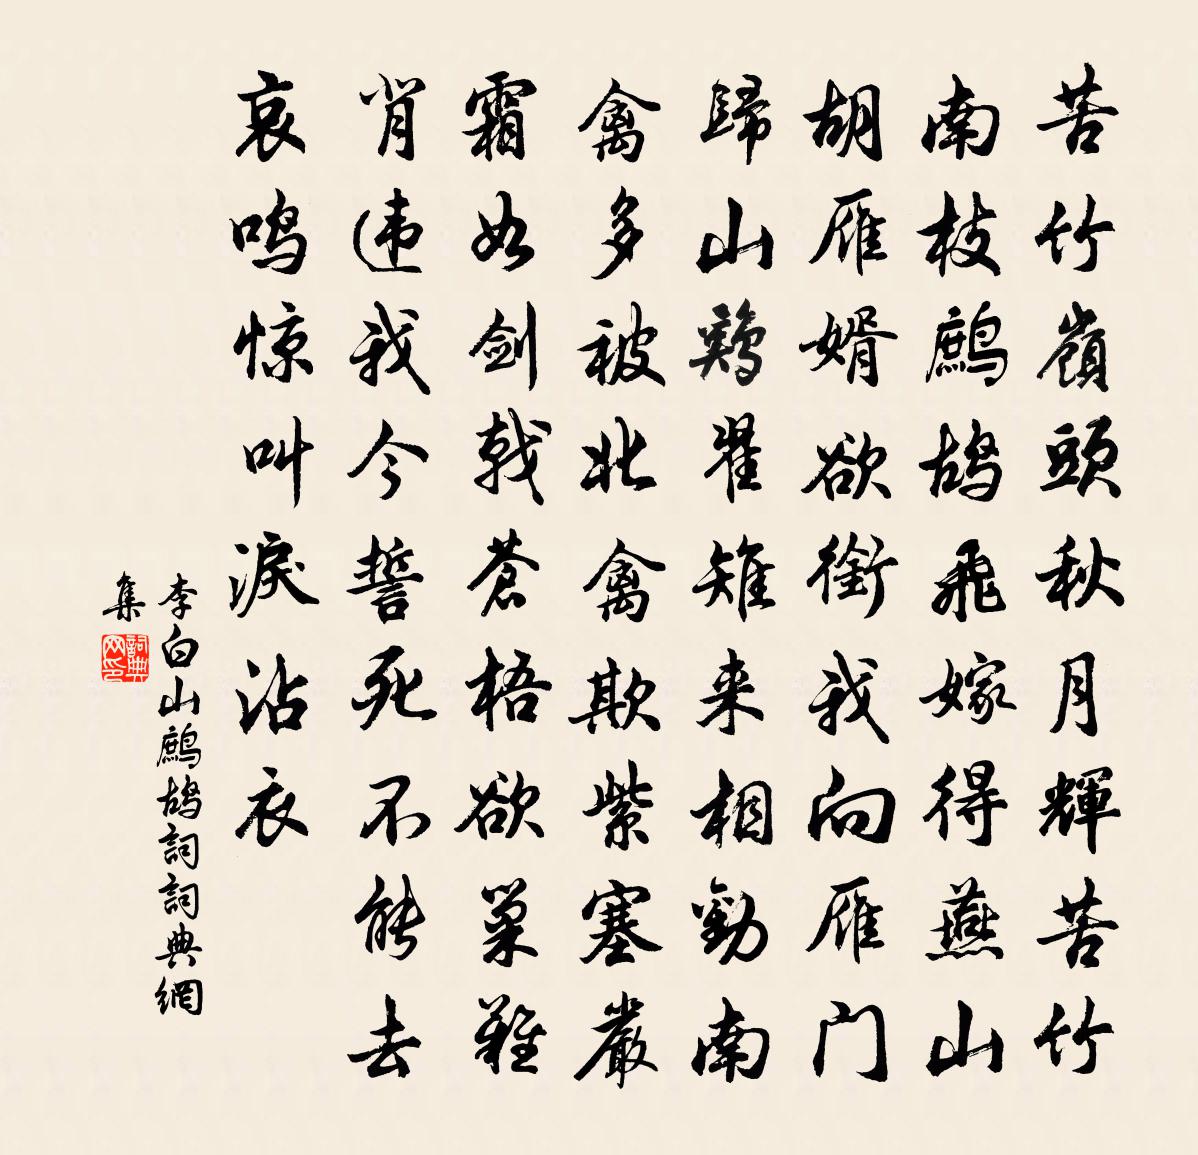 苦竹嶺頭秋月輝苦竹
南枝鷓鴣飛嫁得燕山
胡雁婿欲銜我向雁门
歸山鷄翟雉来相勸南
禽多被北禽欺紫塞嚴
霜如剑戟蒼梧欲巢難
背违我今誓死不能去
哀鸣惊叫淚沾衣
李白山鷓鴣詞詞典網
集
詞典
网印